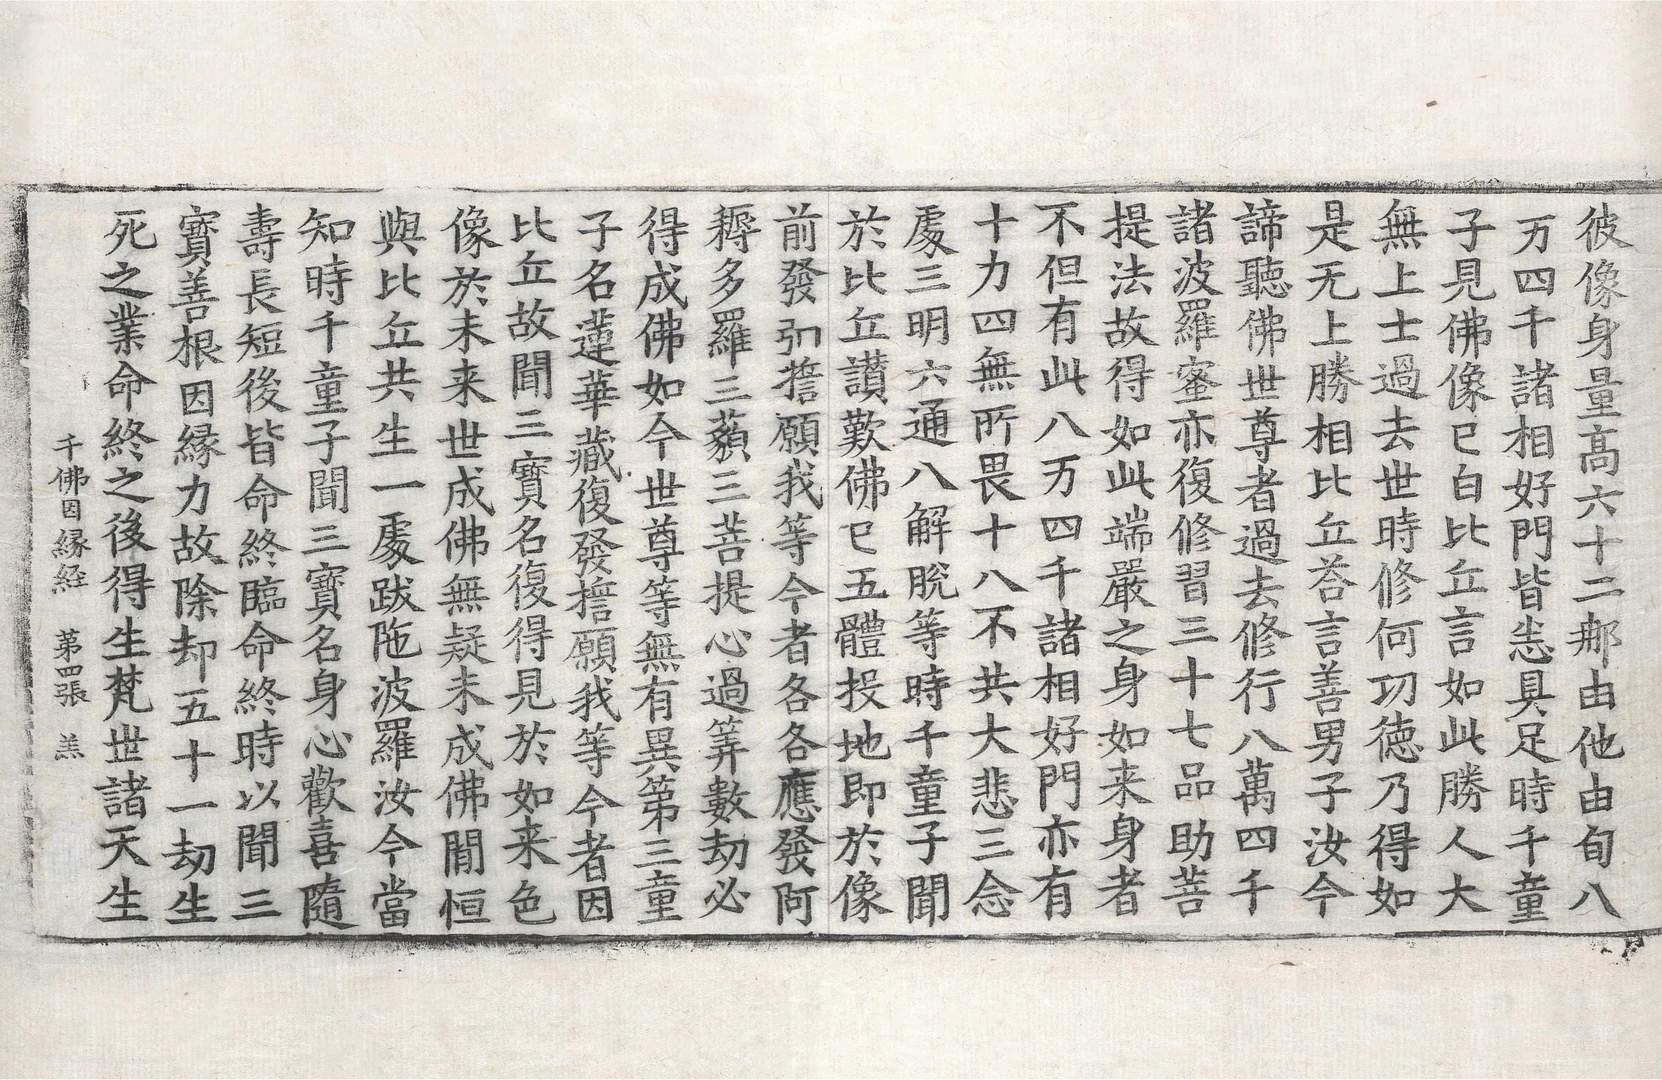 彼像身量高六十二那由他由旬八
万四千諸相好門皆悉具足時千童
子見佛像已白比丘言如此勝人大
無上士過去世時修何功德乃得如
是无上勝相比丘荅言善男子汝今
諦聽佛世尊者過去修行八萬四千
諸波羅蜜亦復修習三十七品助菩
提法故得如此端嚴之身如来身者
不但有此八万四千諸相好門亦有
十力四無所畏十八不共大悲三念
處三明六通八解脫等時千童子聞
於比丘讃歎佛已五體投地即於像
前發弘擔願我等今者各各應發阿
耨多羅三藐三菩提心過筭數劫必
得成佛如今世尊等無有異第三童
子名蓮華藏復發擔願我等今者因
比丘故聞三寶名復得見於如来色
像於未来世成佛無疑未成佛閒恒
與比丘共生一處跋陁波羅汝今當
知時千童子聞三寶名身心歡喜隨
壽長短後皆命終臨命終時以聞三
寶善根因縁力故除却五十一劫生
死之業命終之後得生梵世諸天生
千佛因縁経 第四張 羔